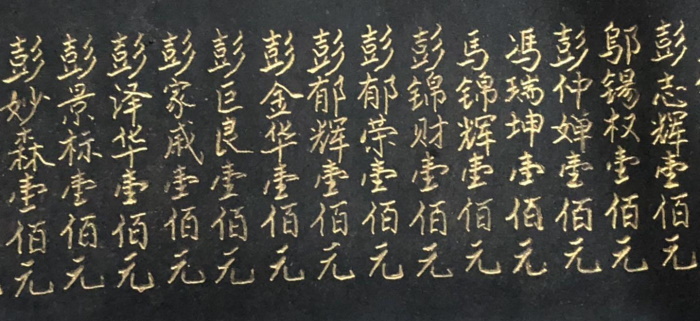 彭志辉壹佰元
邬锡权壹佰元
彭仲婵壹佰元
冯瑞坤壹佰元
马锦辉壹佰元
彭锦财壹佰元
彭郁荣壹佰元
彭郁辉壹佰元
彭金华壹佰元
彭巨良壹佰元
彭家威壹佰元
彭泽华壹佰元
彭景标壹佰元
彭妙森壹佰元